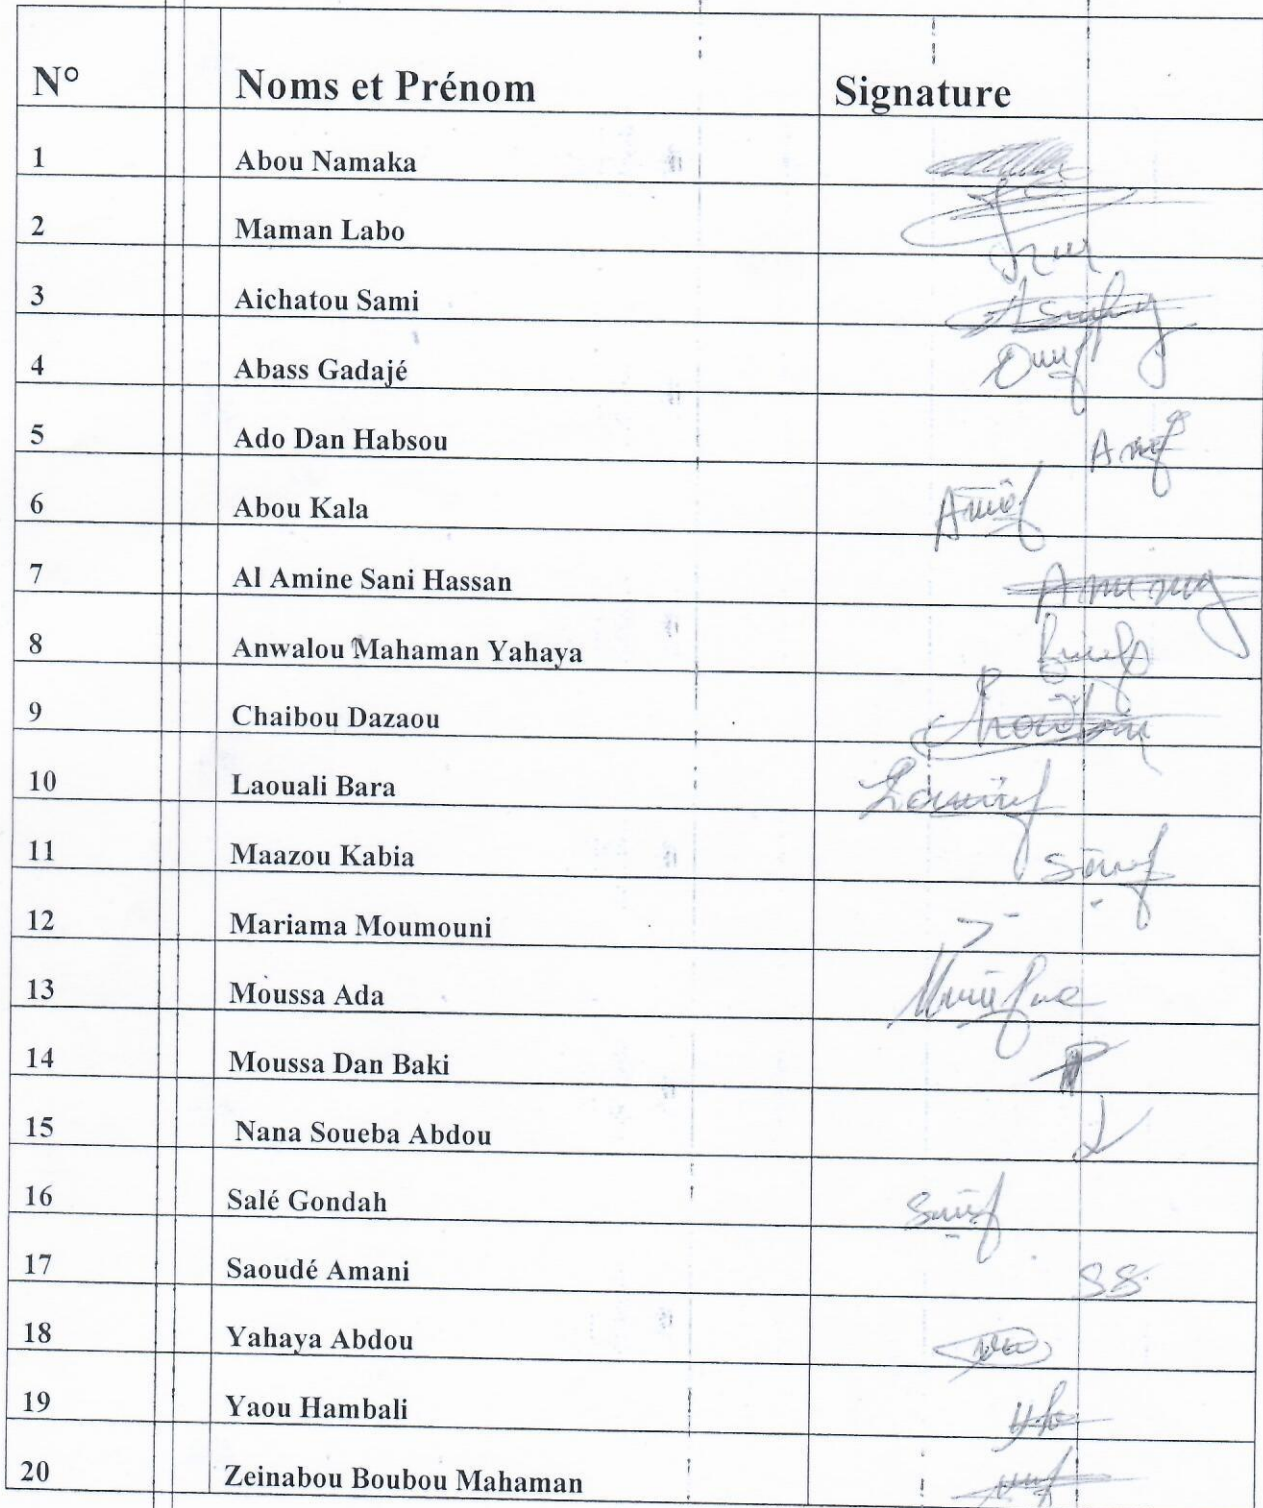 N° Noms et Prénom Signature
1 Abou Namaka
2 Maman Labo
3 Aichatou Sami
4 Abass Gadajé
5 Ado Dan Habsou
6 Abou Kala
7 Al Amine Sani Hassan
8 Anwalou Mahaman Yahaya
9 Chaibou Dazaou
10 Laouali Bara
11 Maazou Kabia
12 Mariama Moumouni
13 Moussa Ada
14 Moussa Dan Baki
15 Nana Soueba Abdou
16 Salé Gondah
17 Saoudé Amani SS
18 Yahaya Abdou
19 Yaou Hambali
20 Zeinabou Boubou Mahaman